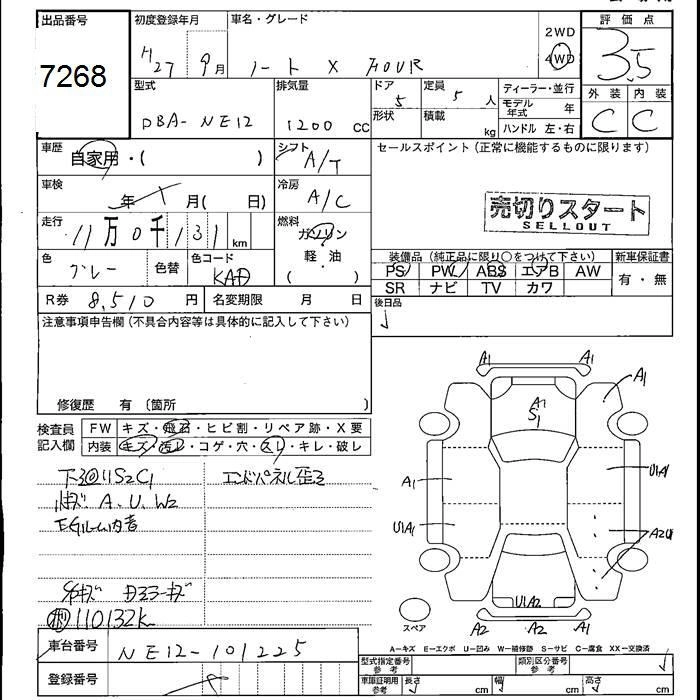 出品番号 初度登録年月 車名・グレード 評価点
7268 H27 9月 ノート X FOUR 2WD 4WD 3.5
型式 排気量 ドア 定員 ディーラー・並行 外装 内装
DBA-NE12 1200 CC 5 5 人 モデル年式 年 C C
形状 積載 kg ハンドル 左・右
車歴 自家用・( ) シフト A/T セールスポイント(正常に機能するものに限ります)
車検 年 月( 日) 冷房 A/C
売切りスタート
SELLOUT
走行 11万0千131km 燃料 ガソリン
軽・油
( )
色 グレー 色替 色コード KAD
装備品(純正品に限り○をつけて下さい) 新車保証書
PS PW ABS エアB AW 有・無
SR ナビ TV カワ
R券 8,510円 名変期限 月 日 後日品
注意事項申告欄(不具合内容等は具体的に記入して下さい)
修復歴 有 〔箇所 〕
検査員 FW キズ・飛石・ヒビ割・リペア跡・X要
記入欄 内装 キズ・汚レ・コゲ・穴・スレ・キレ・破レ
S2C1 エンドパネル歪ミ
キズ A、U、W2
キズ
110132K
A1 A1
A1 A1
S1
A1 U1A1
U1A1 A2U1
U1A2
スペア A2 A2 A1
A-キズ E-エクボ U-凹み W-補修跡 S-サビ C-腐食 XX-交換済
車台番号 NE12-101225
型式指定番号参考 類別区分番号
登録番号
車庫証明用参考 長さ cm 幅 cm 高さ cm